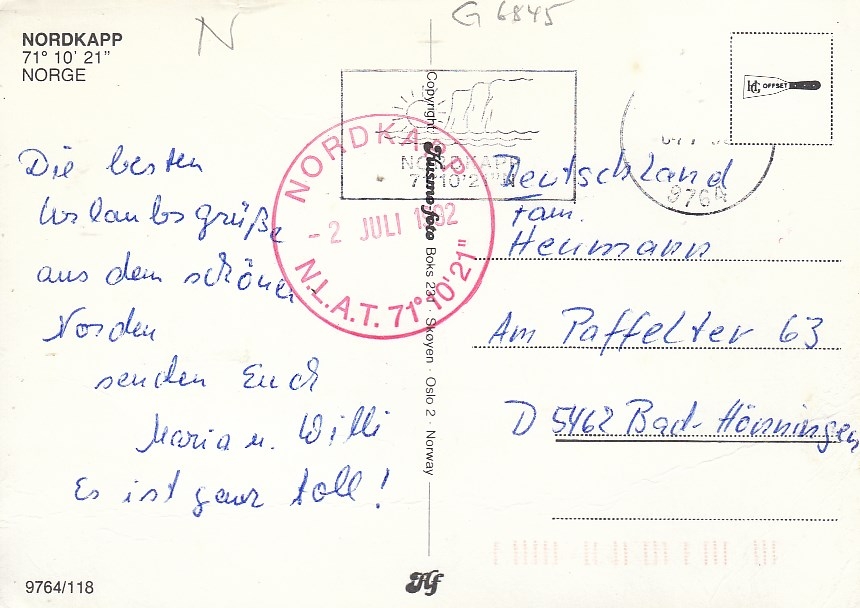 NORDKAPP
71° 10' 21"
NORGE
N
G 6845
Die besten
Urlaubsgrüße
aus dem schönen
Norden
senden Euch
Maria u. Willi
Es ist ganz toll!
NORDKAPP
71°10'21"N
NORDKAPP
- 2 JULI 1992
N.L.A.T. 71°10'21"
9764
OFFSET
Copyright: Husmo-foto Boks 231 · Skøyen · Oslo 2 · Norway
Deutschland
Fam.
Heumann
Am Paffelter 63
D 5462 Bad-Hönningen
9764/118
Hf